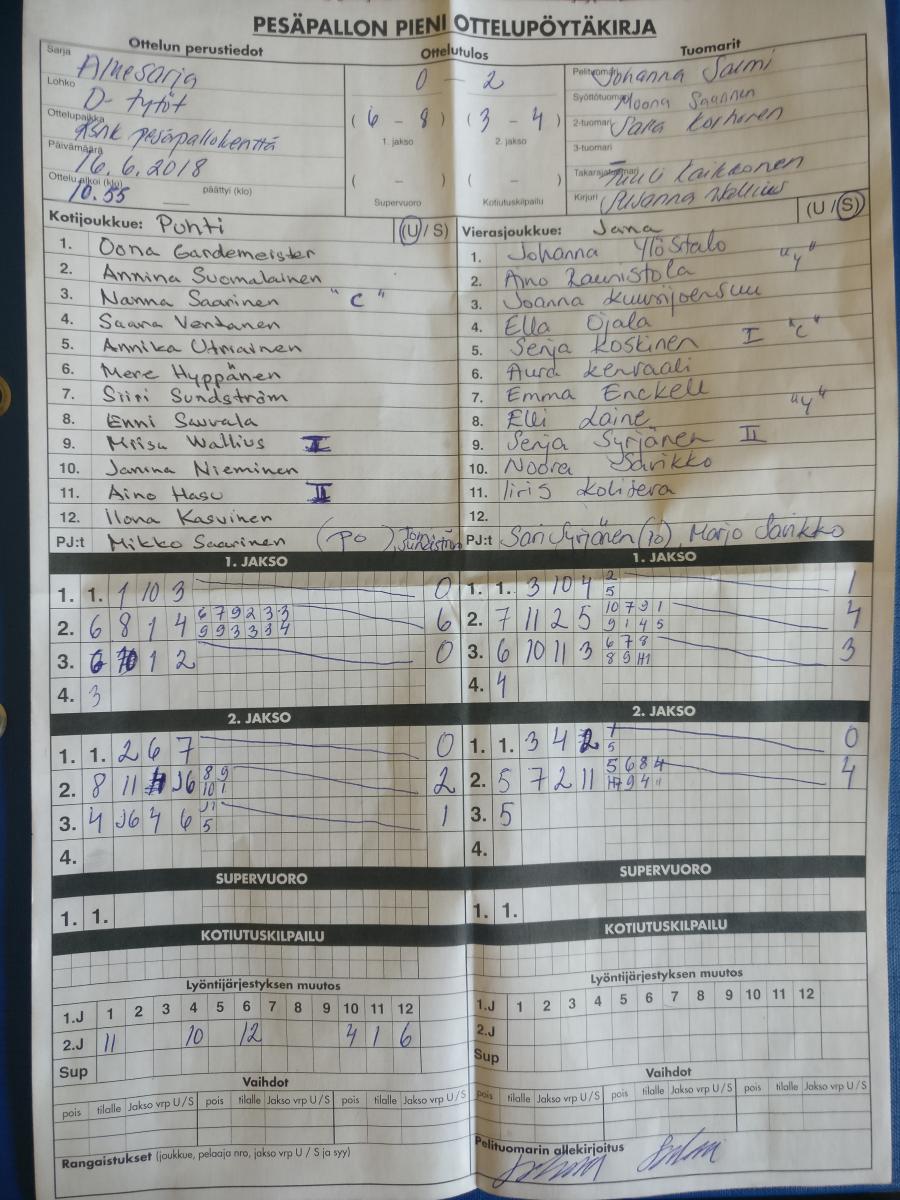 PESÄPALLON PIENI OTTELUPÖYTÄKIRJA
Ottelun perustiedot Ottelutulos Tuomarit
Sarja Aluesarja
Lohko D-tytöt
Ottelupaikka pesäpallokenttä
Päivämäärä 16.6.2018
Ottelu alkoi (klo) 10.55 päättyi (klo)
0 - 2
(6 - 8) (3 - 4)
1. jakso 2. jakso
( - ) ( )
Supervuoro Kotiutuskilpailu
Pelituomari Johanna Salmi
Syöttötuomari Moona Saarinen
2-tuomari Salla Korhonen
3-tuomari
Takarajatuomari Tuuli Kaikkonen
Kirjuri Susanna Wallius
Kotijoukkue: Puhti (U / S)
1. Oona Gardemeister
2. Annina Suomalainen
3. Nanna Saarinen "C"
4. Saana Ventanen
5. Annika Utriainen
6. Mere Hyppänen
7. Siiri Sundström
8. Enni Sauvala
9. Miisa Wallius I
10. Janina Nieminen
11. Aino Hasu II
12. Ilona Kasvinen
PJ:t Mikko Saarinen (PO), Tomi Sundström
Vierasjoukkue: Jana (U / S)
1. Johanna Ylöstalo "y"
2. Aino Raunistola
3. Joanna Kuusijoensuu
4. Ella Ojala "C"
5. Senja Koskinen I
6. Aura Kervaali
7. Emma Enckell
8. Elli Laine "y"
9. Senja Syrjänen II
10. Noora Sarikko
11. Iiris Kolijeva
12.
PJ:t Sari Syrjänen (PO), Marjo Sarikko
1. JAKSO
1. 1. 1 10 3 0
2. 6 8 1 4 6 7 9 2 3 3 6
9 9 3 3 3 4
3. 6 10 1 2 0
4. 3
1. JAKSO
1. 1. 3 10 4 2 1
5
2. 7 11 2 5 10 7 9 1 4
9 1 4 5
3. 6 10 11 3 6 7 8 3
8 9 11
4. 4
2. JAKSO
1. 1. 2 6 7 0
2. 8 11 J6 8 9 2
10 1
3. 4 J6 4 6 J1 1
5
4.
2. JAKSO
1. 1. 3 4 2 1 0
5
2. 5 7 2 11 5 6 8 4 4
9 4 11
3. 5
4.
SUPERVUORO
1. 1.
SUPERVUORO
1. 1.
KOTIUTUSKILPAILU
Lyöntijärjestyksen muutos
1.J 1 2 3 4 5 6 7 8 9 10 11 12
2.J 11 10 12 4 1 6
Sup
Vaihdot
pois tilalle Jakso vrp U / S pois tilalle Jakso vrp U / S pois tilalle Jakso vrp U / S
Rangaistukset (joukkue, pelaaja nro, jakso vrp U / S ja syy)
KOTIUTUSKILPAILU
Lyöntijärjestyksen muutos
1.J 1 2 3 4 5 6 7 8 9 10 11 12
2.J
Sup
Vaihdot
pois tilalle Jakso vrp U / S pois tilalle Jakso vrp U / S pois tilalle Jakso vrp U / S
Pelituomarin allekirjoitus